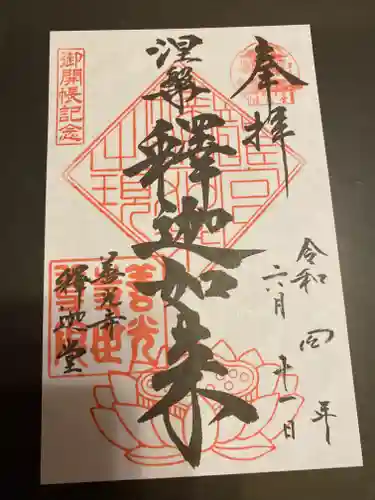 奉拝
涅槃
釋迦如来
令和四年
六月十一日
善光寺
釋迦堂
御開帳記念